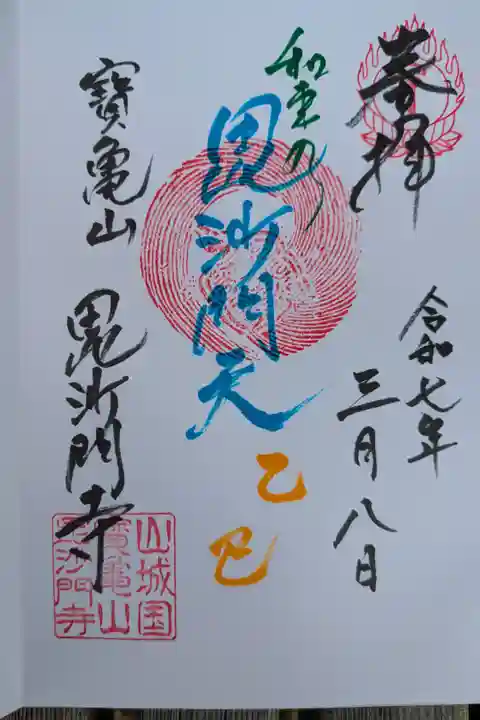 奉拝
令和七年
三月八日
和束の
毘沙門天
乙巳
寳亀山
毘沙門寺
山城国
寳亀山
毘沙門寺